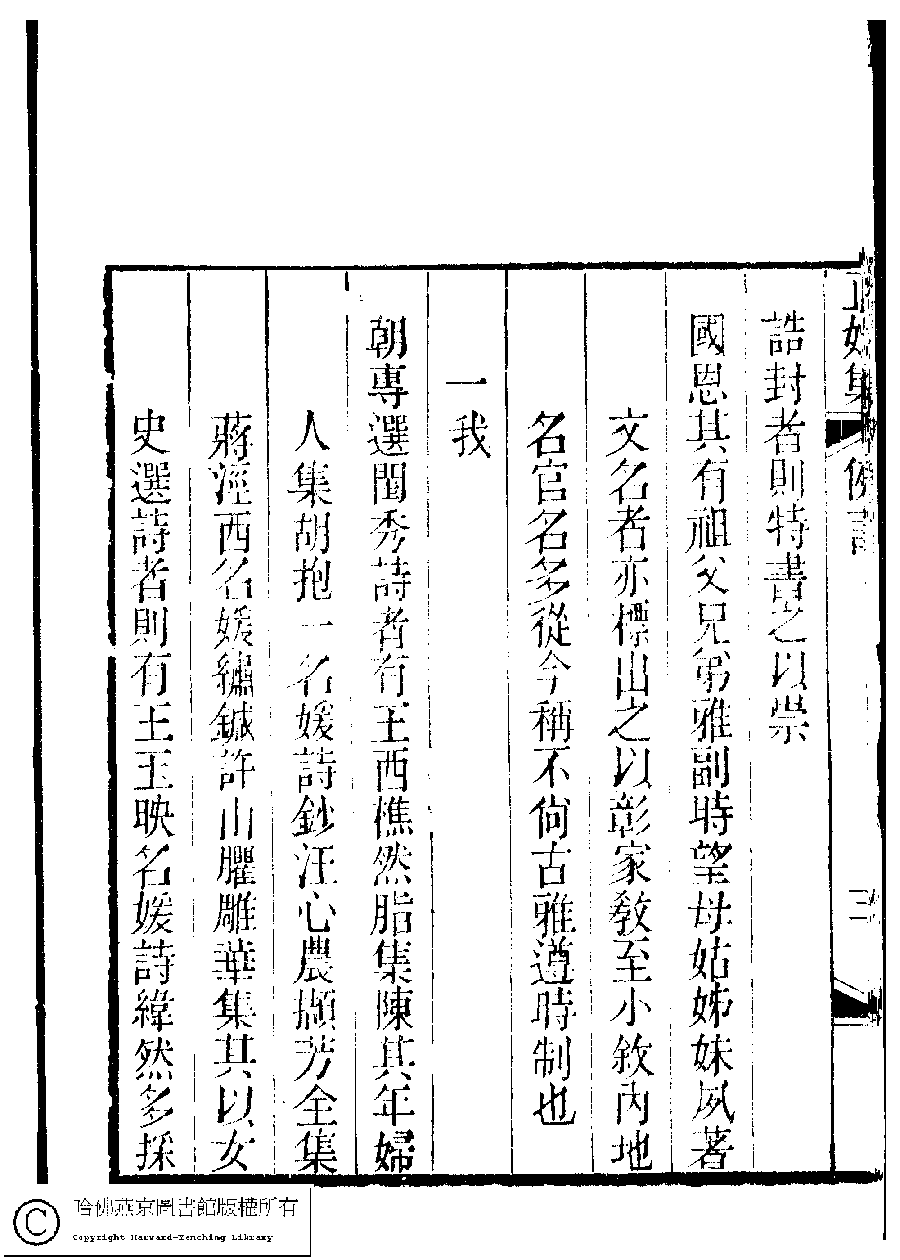 正始集 例言 二
誥封者則特書之以崇
國恩其有祖父兄弟雅副時望母姑姊妹夙著
文名者亦標出之以彰家敎至小敘內地
名官名多從今稱不尙古雅遵時制也
一我
朝專選閨秀詩者有王西樵然脂集陳其年婦
人集胡抱一名媛詩鈔汪心農擷芳全集
蔣涇西名媛繡鍼許山臞雕華集其以女
史選詩者則有王玉映名媛詩緯然多採
哈佛燕京圖書館版權所有
Copyright Harvard-Yenching Library